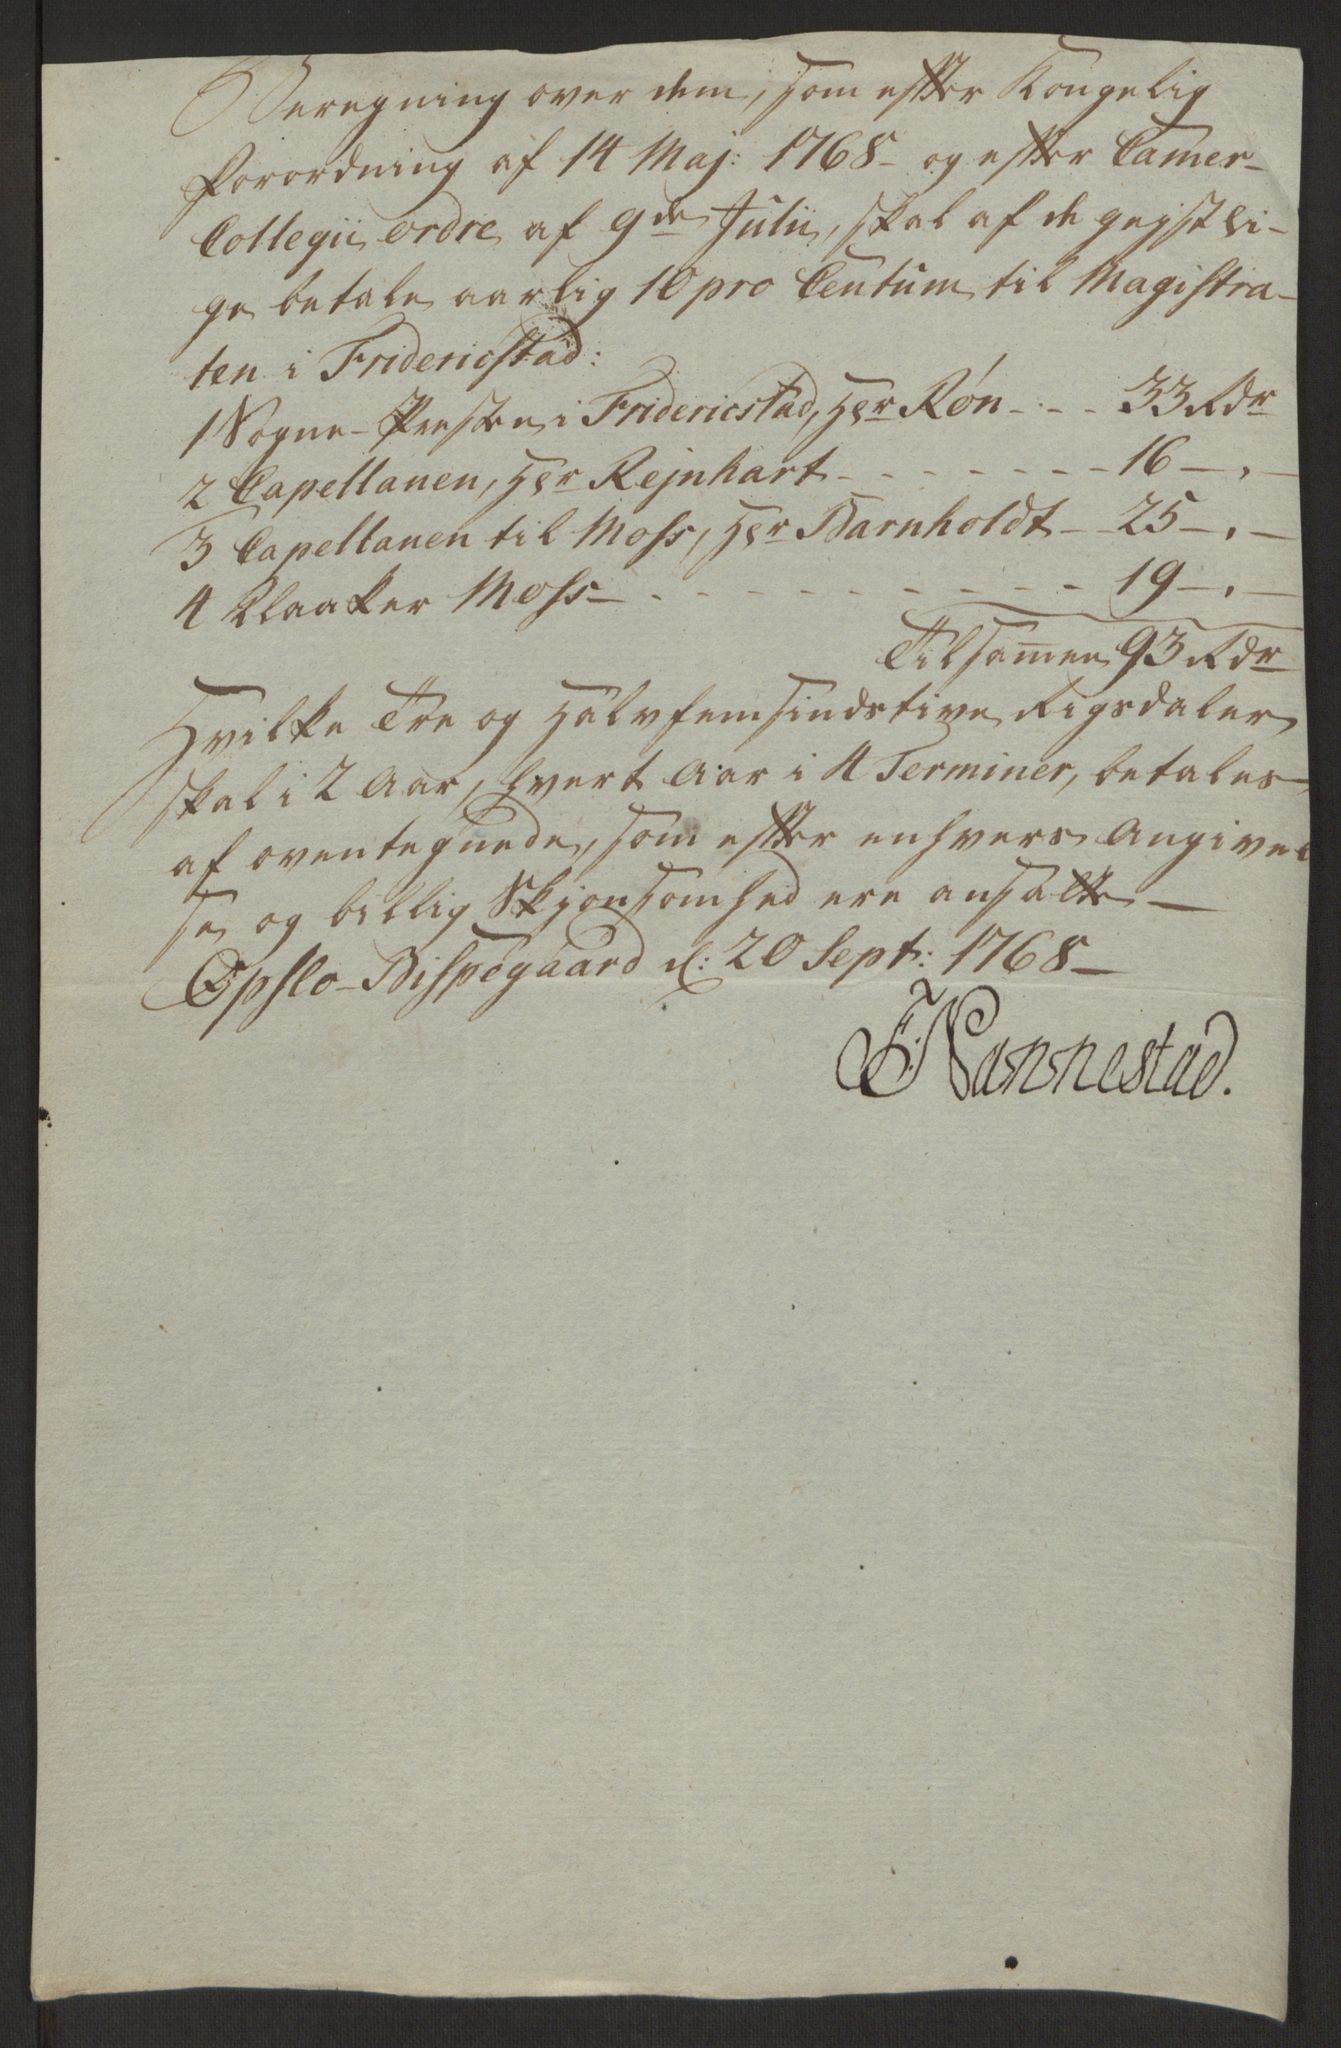 Beregning over dem, som efter Kongelig
Forordning af 14 Maj: 1768 - og efter Camer-
Collegii ordre af 9de Julii, skal af de gejstli-
ge betale aarlig 10 pro Centum til Magistra-
ten i Fridericstad:
1 Sogne-Præsten i Fridericstad, Hr Røn - - - 33 Rdr
2 Capellanen, Hr Rejnhart - - - - - - - 16 - . -
3 Capellanen til Moss, Hr Barnholdt - 25 - . -
4 Klokker Moss - - - - - - - - - - 19 - . -
Tilsamen 93 Rdr
Hvilke Tre og Halvfemsindstive Rigsdaler
skal i 2 Aar, hvert Aar i 4 Terminer, betales
af oventegnede, som efter enhvers Angivel
se og billig Skjønsomhed ere ansatte -
Opslo-Bispegaard d: 20 Sept: 1768 -
F: Nannestad.